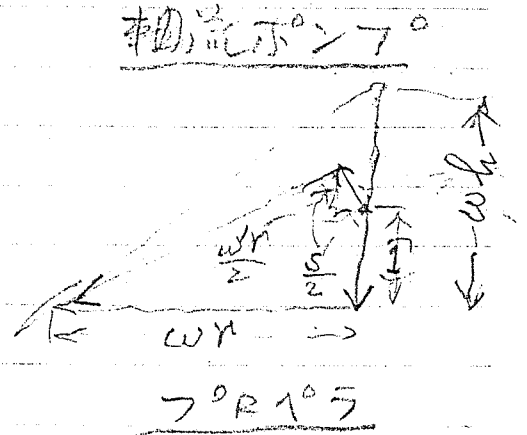 軸流ポンプ
ωr/2
S/2
I
ωh
ωr
プロペラ